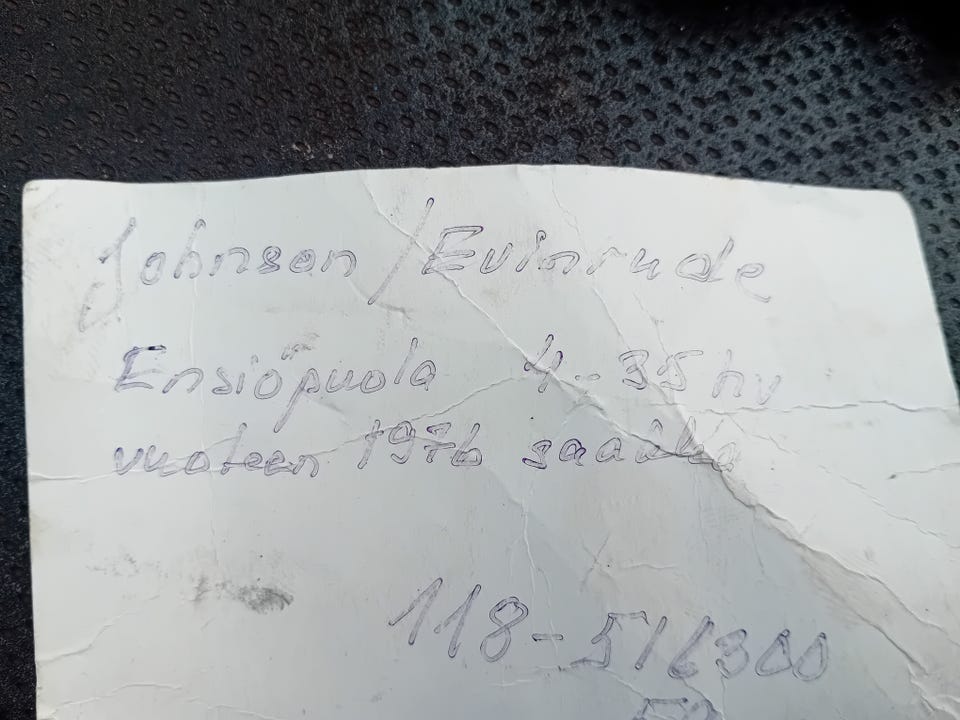 Johnson / Evinrude
Ensiöpuola 4-35 hv
vuoteen 1976 saakka
118-516300